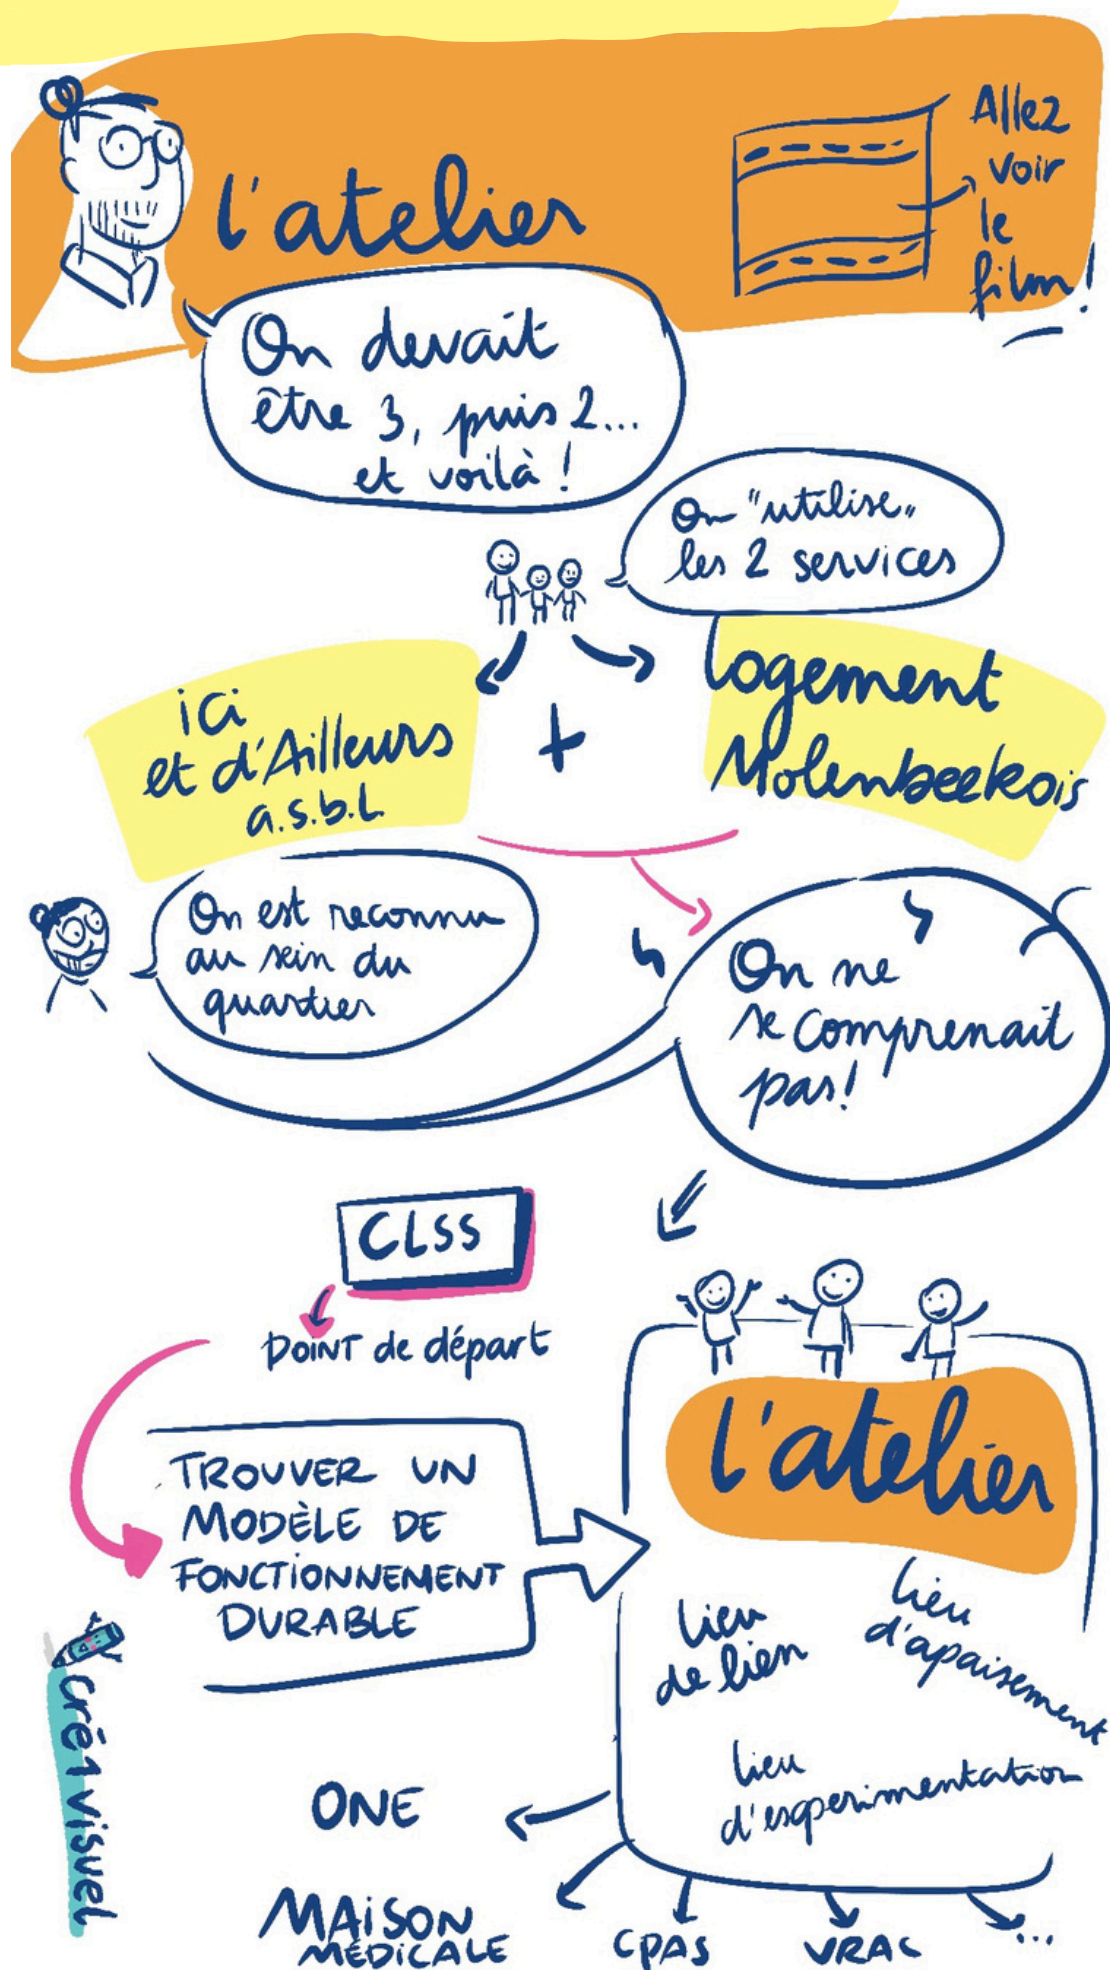 l'atelier
Allez
voir
le
film!
On devait
être 3, puis 2...
et voilà !
On "utilise"
les 2 services
ici
et d'Ailleurs
a.s.b.l.
+
logement
Molenbeekois
On est reconnu
au sein du
quartier
On ne
se comprenait
pas!
CLSS
POINT de départ
TROUVER UN
MODÈLE DE
FONCTIONNEMENT
DURABLE
l'atelier
lieu
de lien
lieu
d'apaisement
lieu
d'experimentation
ONE
MAISON
MÉDICALE
CPAS
VRAC
...
Cré1visuel